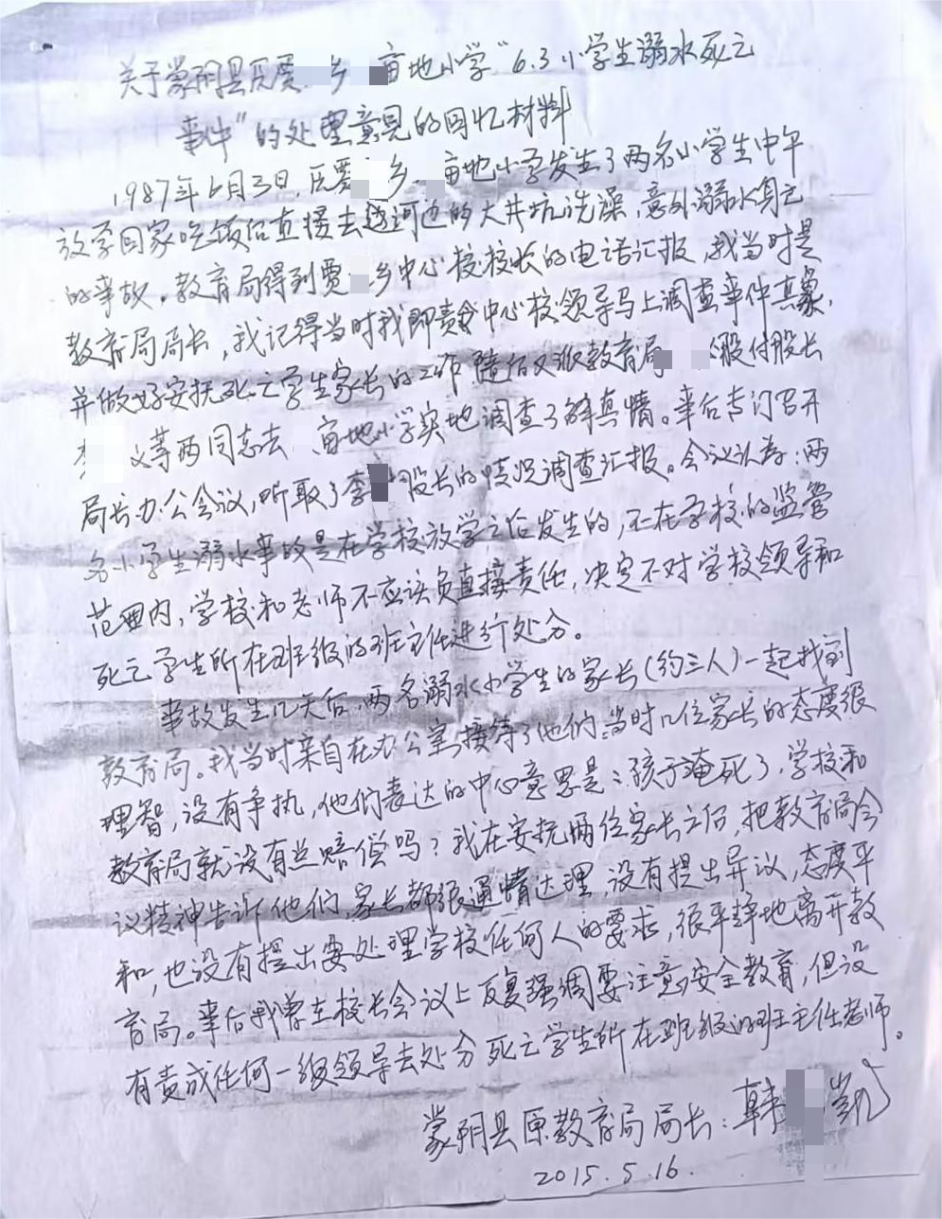 关于蒙阴县贾 乡 亩地小学“6.3小学生溺水死亡
事件”的处理意见的回忆材料
1987年6月3日,贾 乡 亩地小学发生了两名小学生中午
放学回家吃饭后直接去 河边的大井坑洗澡,意外溺水身亡
的事故。教育局得到贾 乡中心校校长的电话汇报,我当时是
教育局局长,我记得当时我即责令中心校领导马上调查事件真象,
并做好安抚死亡学生家长的工作 随后又派教育局 股付股长
李 义等两同志去 亩地小学实地调查了解真情。事后专门召开
局长办公会议,听取了李 股长的情况调查汇报。会议认为:两
名小学生溺水事故是在学校放学之后发生的,不在学校的监管
范围内,学校和老师不应该负直接责任,决定不对学校领导和
死亡学生所在班级的班主任进行处分。
事故发生几天后,两名溺水小学生的家长(约三人)一起找到
教育局。我当时亲自在办公室接待了他们,当时几位家长的态度很
理智,没有争执,他们表达的中心意思是:孩子淹死了,学校和
教育局就没有点赔偿吗?我在安抚两位家长之后,把教育局会
议精神告诉他们,家长都很通情达理,没有提出异议,态度平
和,也没有提出要处理学校任何人的要求,很平静地离开教
育局。事后我曾在校长会议上反复强调要注意安全教育,但没
有责成任何一级领导去处分死亡学生所在班级的班主任老师。
蒙阴县原教育局局长:韩 凯
2015.5.16.